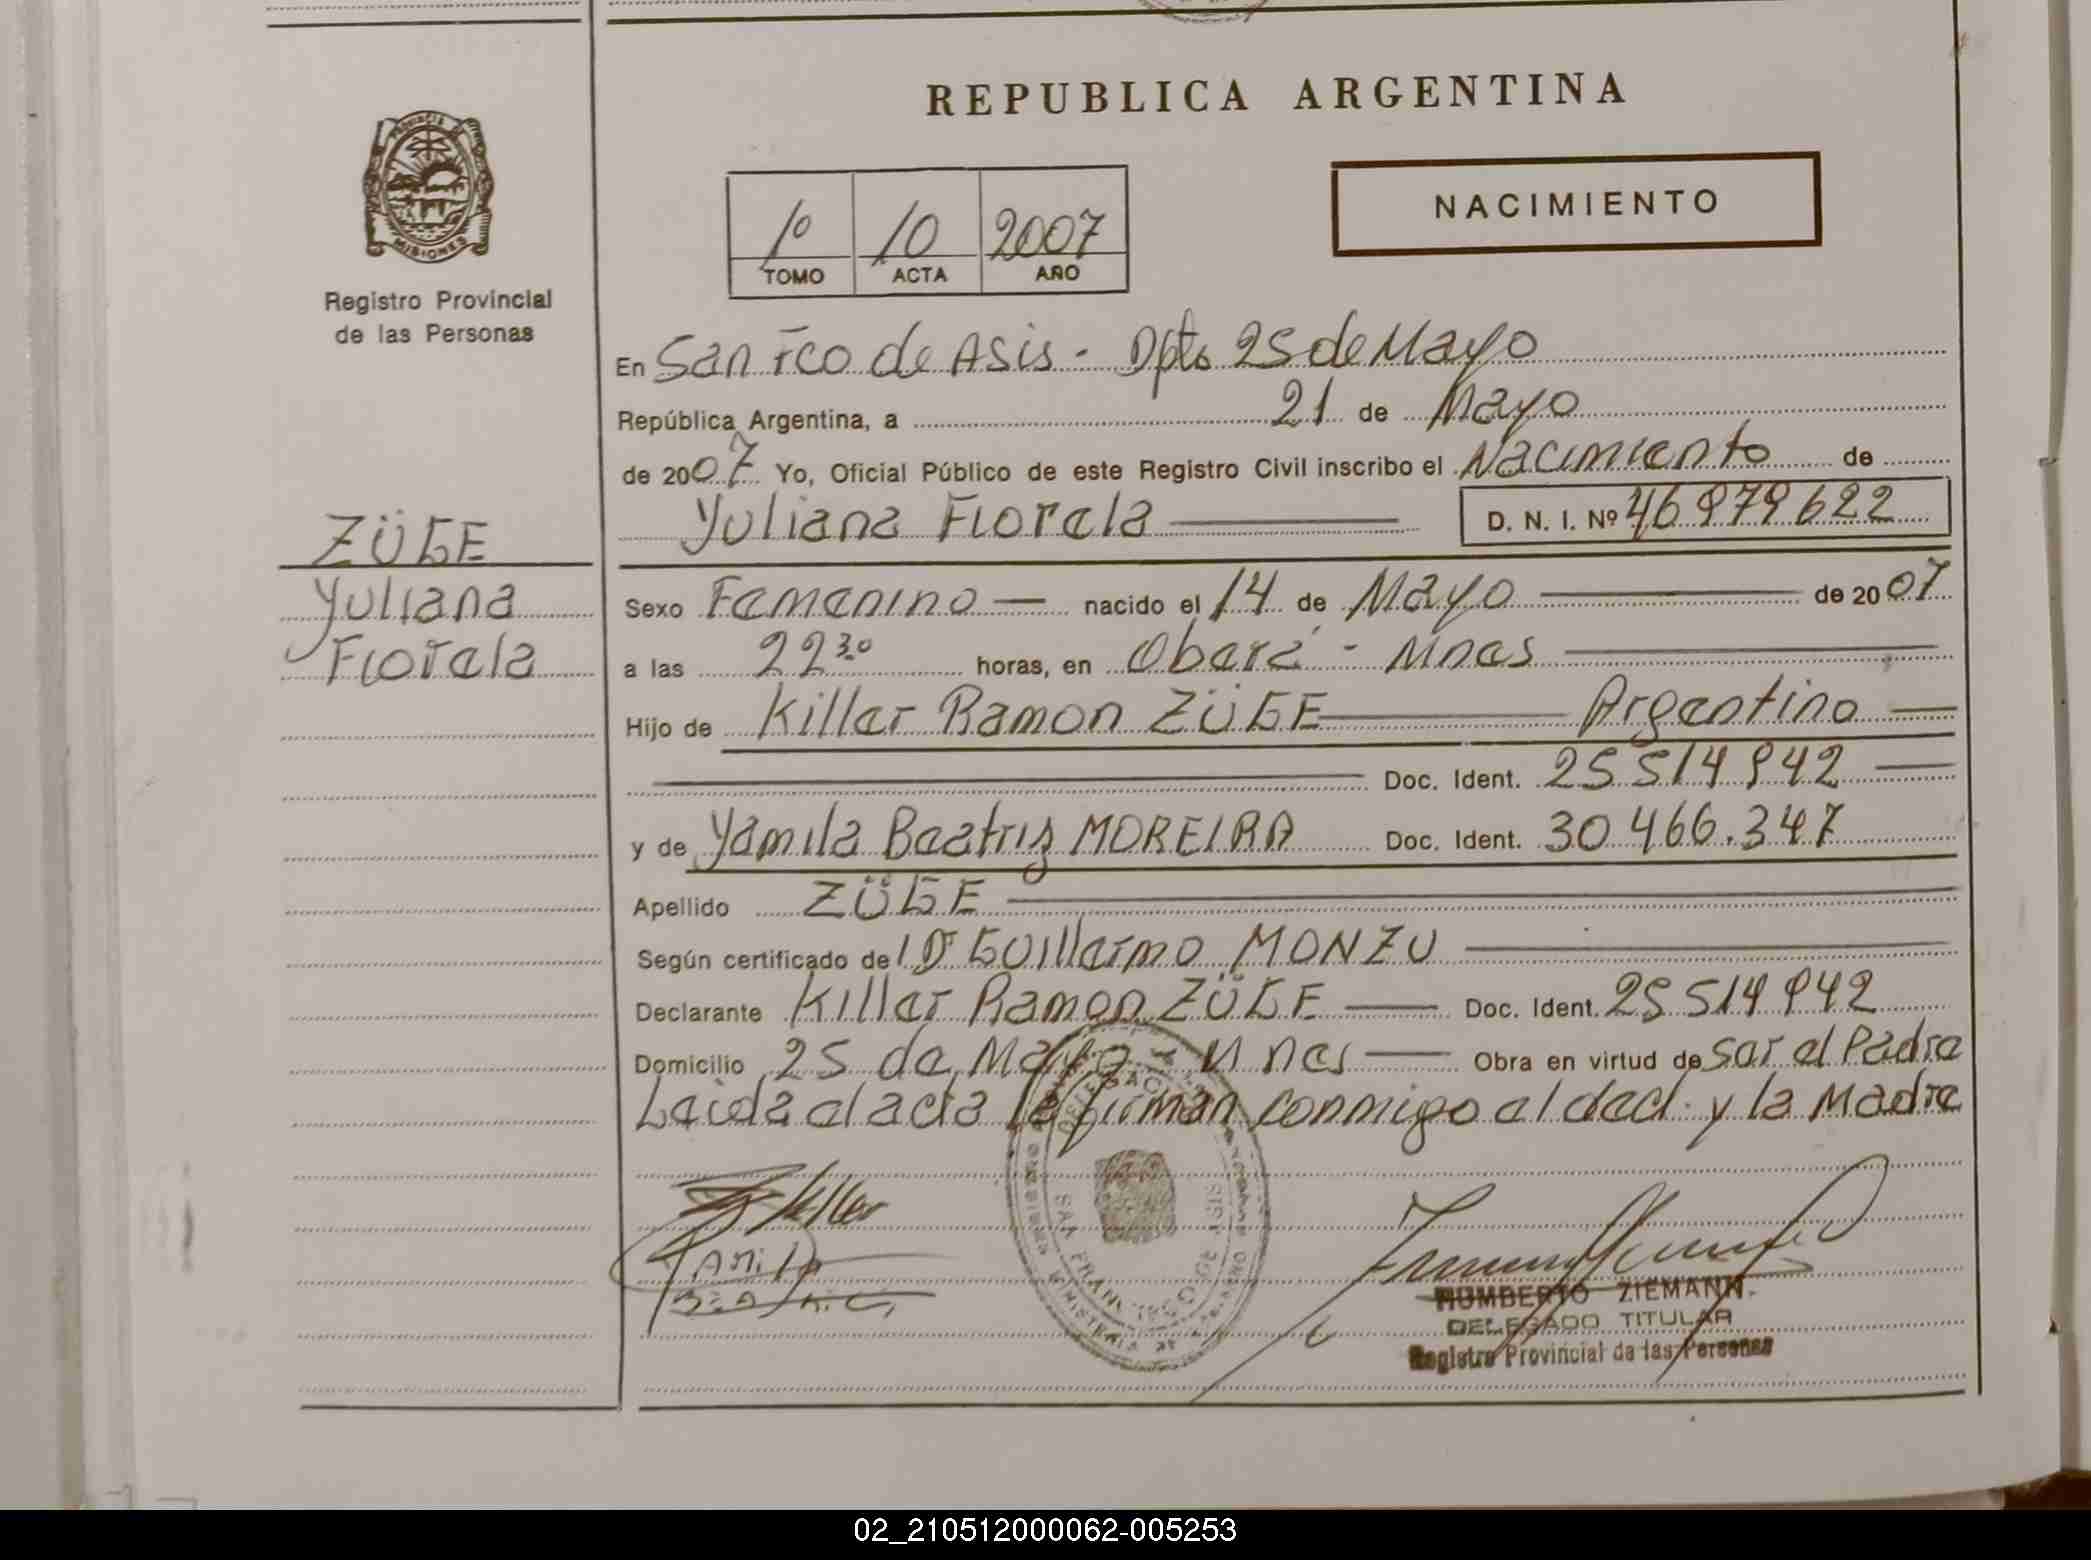 REPUBLICA ARGENTINA
PROVINCIA DE
MISIONES
Registro Provincial
de las Personas
1º 10 2007
TOMO ACTA AÑO
NACIMIENTO
En San Fco de Asis - Dpto 25 de Mayo
República Argentina, a 21 de Mayo
de 2007 Yo, Oficial Público de este Registro Civil inscribo el Nacimiento de
Yuliana Fiorela D. N. I. Nº 46979622
ZÜGE
Yuliana
Fiorela
Sexo Femenino nacido el 14 de Mayo de 2007
a las 22 30 horas, en Oberá - Mnes
Hijo de Killer Ramon ZÜGE Argentino
Doc. Ident. 25 514 942
y de Yamila Beatriz MOREIRA Doc. Ident. 30 466.347
Apellido ZÜGE
Según certificado de Dr Guillermo MONZU
Declarante Killer Ramon ZÜGE Doc. Ident. 25 514 942
Domicilio 25 de Mayo Mnes Obra en virtud de ser el Padre
Leida el acta la firman conmigo el decl. y la Madre
Killer
SAN FRANCISCO DE ASIS
HUMBERTO ZIEMANN
DELEGADO TITULAR
Registro Provincial de las Personas
02_210512000062-005253